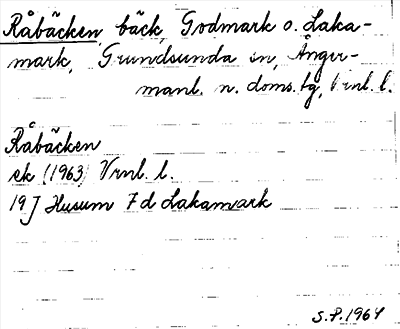 Råbäcken bäck, Godmark o. Laka-
mark, Grundsunda sn, Ånger-
manl. n. doms. tg, Vrnl. l.
Råbäcken
ek (1963) Vrnl. l.
19 J Husum 7 d Lakamark
S.P. 1964